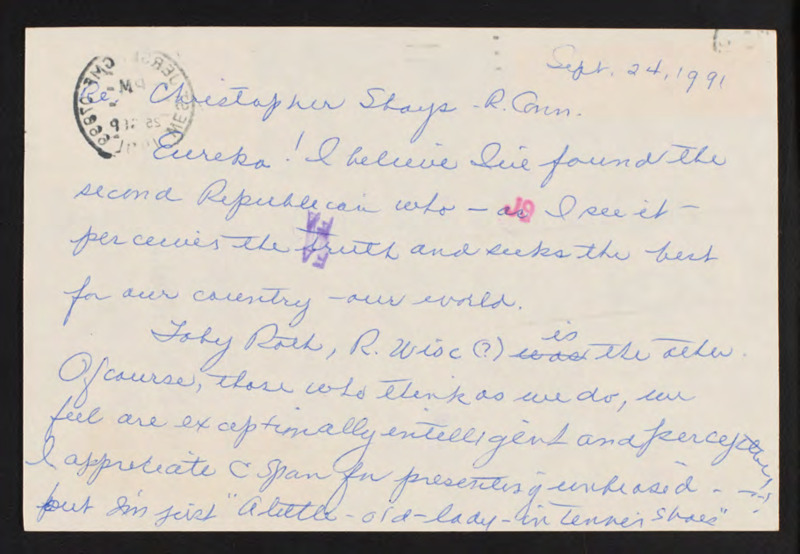 Sept. 24, 1991
Re. Christopher Shays - R. Conn.
Eureka! I believe I've found the
second Republican who - as I see it -
perceives the truth and seeks the best
for our country - our world.
is
Toby Roth, R. Wisc (?) was the other.
Of course, those who think as we do, we
feel are exceptionally intelligent and perceptive
I appreciate C Span for presenting unbiased -
but I'm just "A little-old-lady-in tennis shoes"